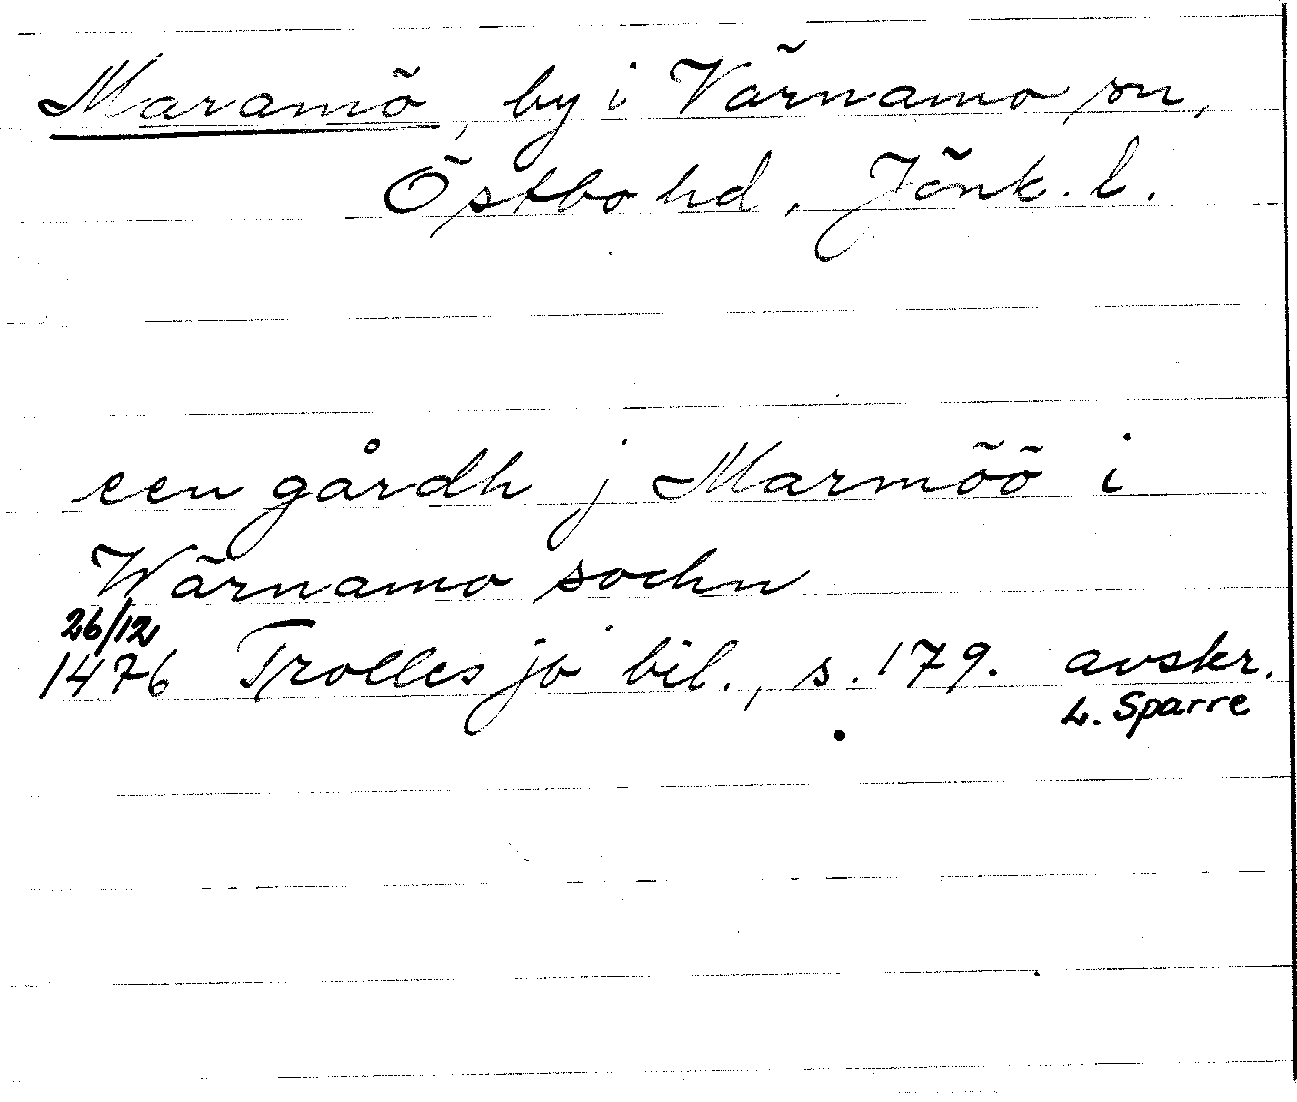 Maramö, by i Värnamo sn,
Östbo hd, Jönk. l.
een gårdh j Marmöö i
Wärnamo sochn
26/12
1476 Trolles jb bil., s. 179. avskr.
L. Sparre